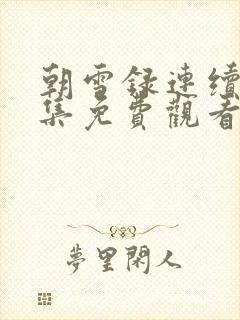 朝雪録連續
集免費觀看
夢里閑人